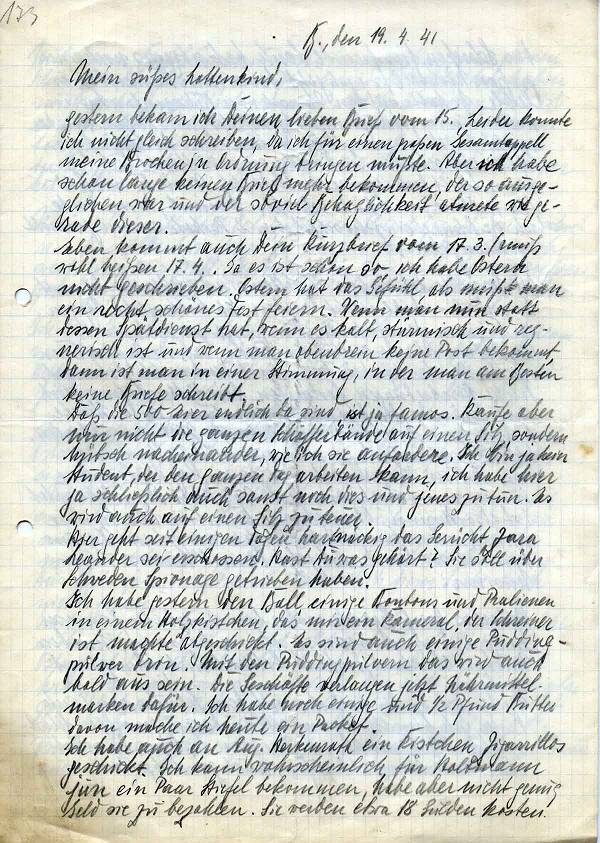 173
K., den 19. 4. 41
Mein süßes Lottenkind,
gestern bekam ich Deinen lieben Brief vom 15. Leider konnte
ich nicht gleich schreiben, da ich für einen großen Gesamtappell
meine Brocken in Ordnung bringen mußte. Aber ich habe
schon lange keinen Brief mehr bekommen, der so ausge-
glichen war und der soviel Behaglichkeit atmete wie ge-
rade dieser.
Eben kommt auch Dein Kurzbrief vom 17. 3. (muß
wohl heißen 17. 4. Ja es ist schon so, ich habe Ostern
nicht geschrieben. Ostern hat das Gefühl, als müßte man
ein recht schönes Fest feiern. Wenn man nun statt
dessen Spätdienst hat, wenn es kalt, stürmisch und reg-
nerisch ist und wenn man obendrein keine Post bekommt,
dann ist man in einer Stimmung, in der man am Besten
keine Briefe schreibt.
Daß die 500 hier endlich da sind ist ja famos. Kaufe aber
nun nicht die ganzen Bände auf einen Sitz, sondern
hübsch nacheinander, wie ich sie anfordere. Ich bin ja kein
Student, der den ganzen Tag arbeiten kann, ich habe hier
ja schließlich auch sonst noch dies und jenes zu tun. Es
wird auch auf einen Sitz zu teuer.
Hier geht seit einigen Tagen hartnäckig das Gerücht, Zara
Leander sei erschossen. Hast Du was gehört? Sie soll über
Schweden Spionage getrieben haben.
Ich habe gestern den Ball, einige Bonbons und Pralienen
in einem Holzkistchen, das mir ein Kamerad, der Schreiner
ist machte abgeschickt. Es sind auch einige Pudding-
pulver drin. Mit den Puddingpulvern das wird auch
bald aus sein. Die Geschäfte verlangen jetzt Nährmittel-
marken dafür. Ich habe noch einige und 1/2 Pfund Butter
davon mache ich heute ein Paket.
Ich habe auch an Aug. ein Kistchen Zigarrillos
geschickt. Ich kann wahrscheinlich für
jun ein Paar Stiefel bekommen, habe aber nicht genug
Geld sie zu bezahlen. Sie werden etwa 18 Gulden kosten.